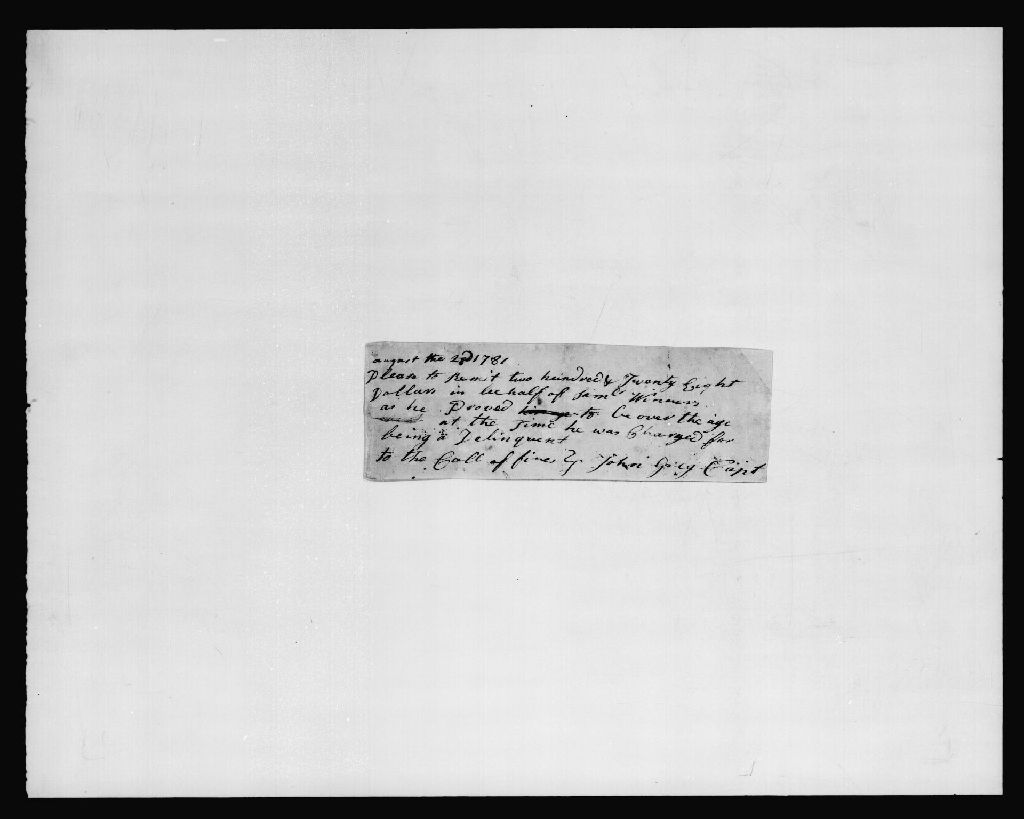 august the 2nd 1781
Please to Remit two hundred & Twenty Eight
Dollars in behalf of Saml Winners
as he Proved to be over the age
at the Time he was Charged for
being a Delinquent
to the Coll of fines John Gray Capt